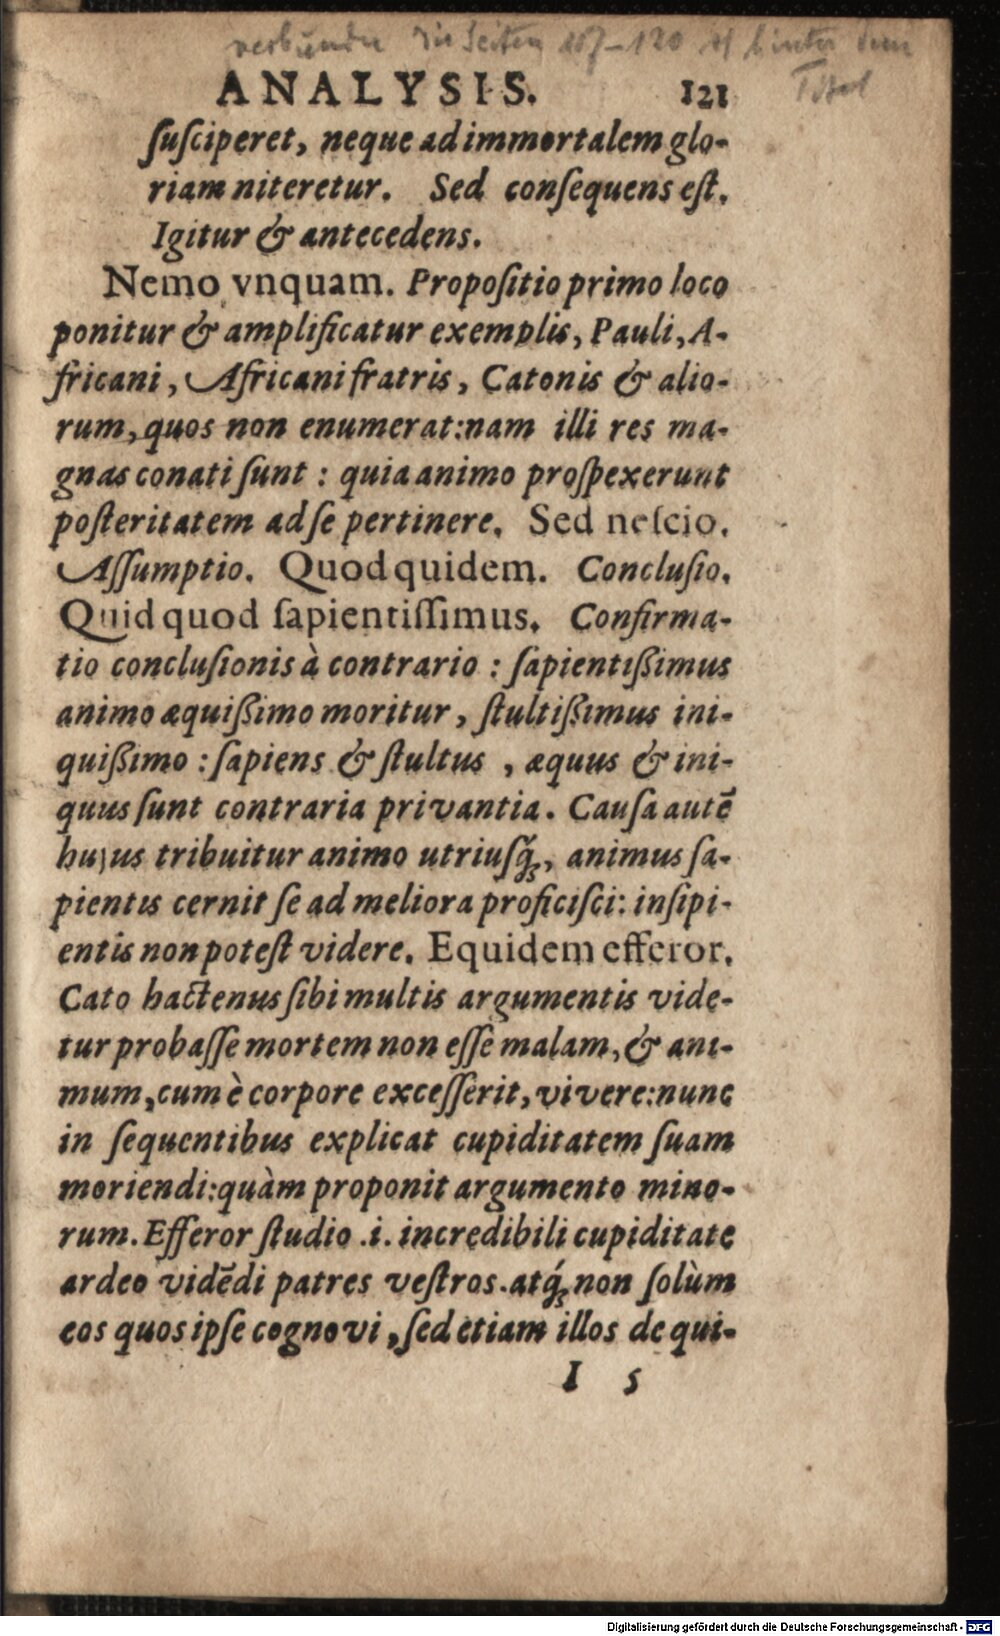 verbunden die Seiten 107–120 hinter dem
Titel
ANALYSIS. 121
ſuſciperet, neque ad immortalem glo-
riam niteretur. Sed conſequens eſt.
Igitur & antecedens.
Nemo vnquam. Propoſitio primo loco
ponitur & amplificatur exemplis, Pauli, A-
fricani, Africani fratris, Catonis & alio-
rum, quos non enumerat: nam illi res ma-
gnas conati ſunt: quia animo proſpexerunt
poſteritatem ad ſe pertinere. Sed neſcio.
Aſſumptio. Quod quidem. Concluſio.
Quid quod ſapientiſſimus. Confirma-
tio concluſionis à contrario: ſapientißimus
animo æquißimo moritur, ſtultißimus ini-
quißimo: ſapiens & ſtultus, æquus & ini-
quus ſunt contraria privantia. Cauſa autē
hujus tribuitur animo utriuſq́;, animus ſa-
pientis cernit ſe ad meliora proficiſci: inſipi-
entis non poteſt videre. Equidem efferor.
Cato hactenus ſibi multis argumentis vide-
tur probaſſe mortem non eſſe malam, & ani-
mum, cum è corpore exceſſerit, vivere: nunc
in ſequentibus explicat cupiditatem ſuam
moriendi: quàm proponit argumento mino-
rum. Efferor ſtudio .i. incredibili cupiditate
ardeo vidēdi patres veſtros. atq́; non ſolùm
eos quos ipſe cognovi, ſed etiam illos de qui-
I 5
Digitalisierung gefördert durch die Deutsche Forschungsgemeinschaft - DFG